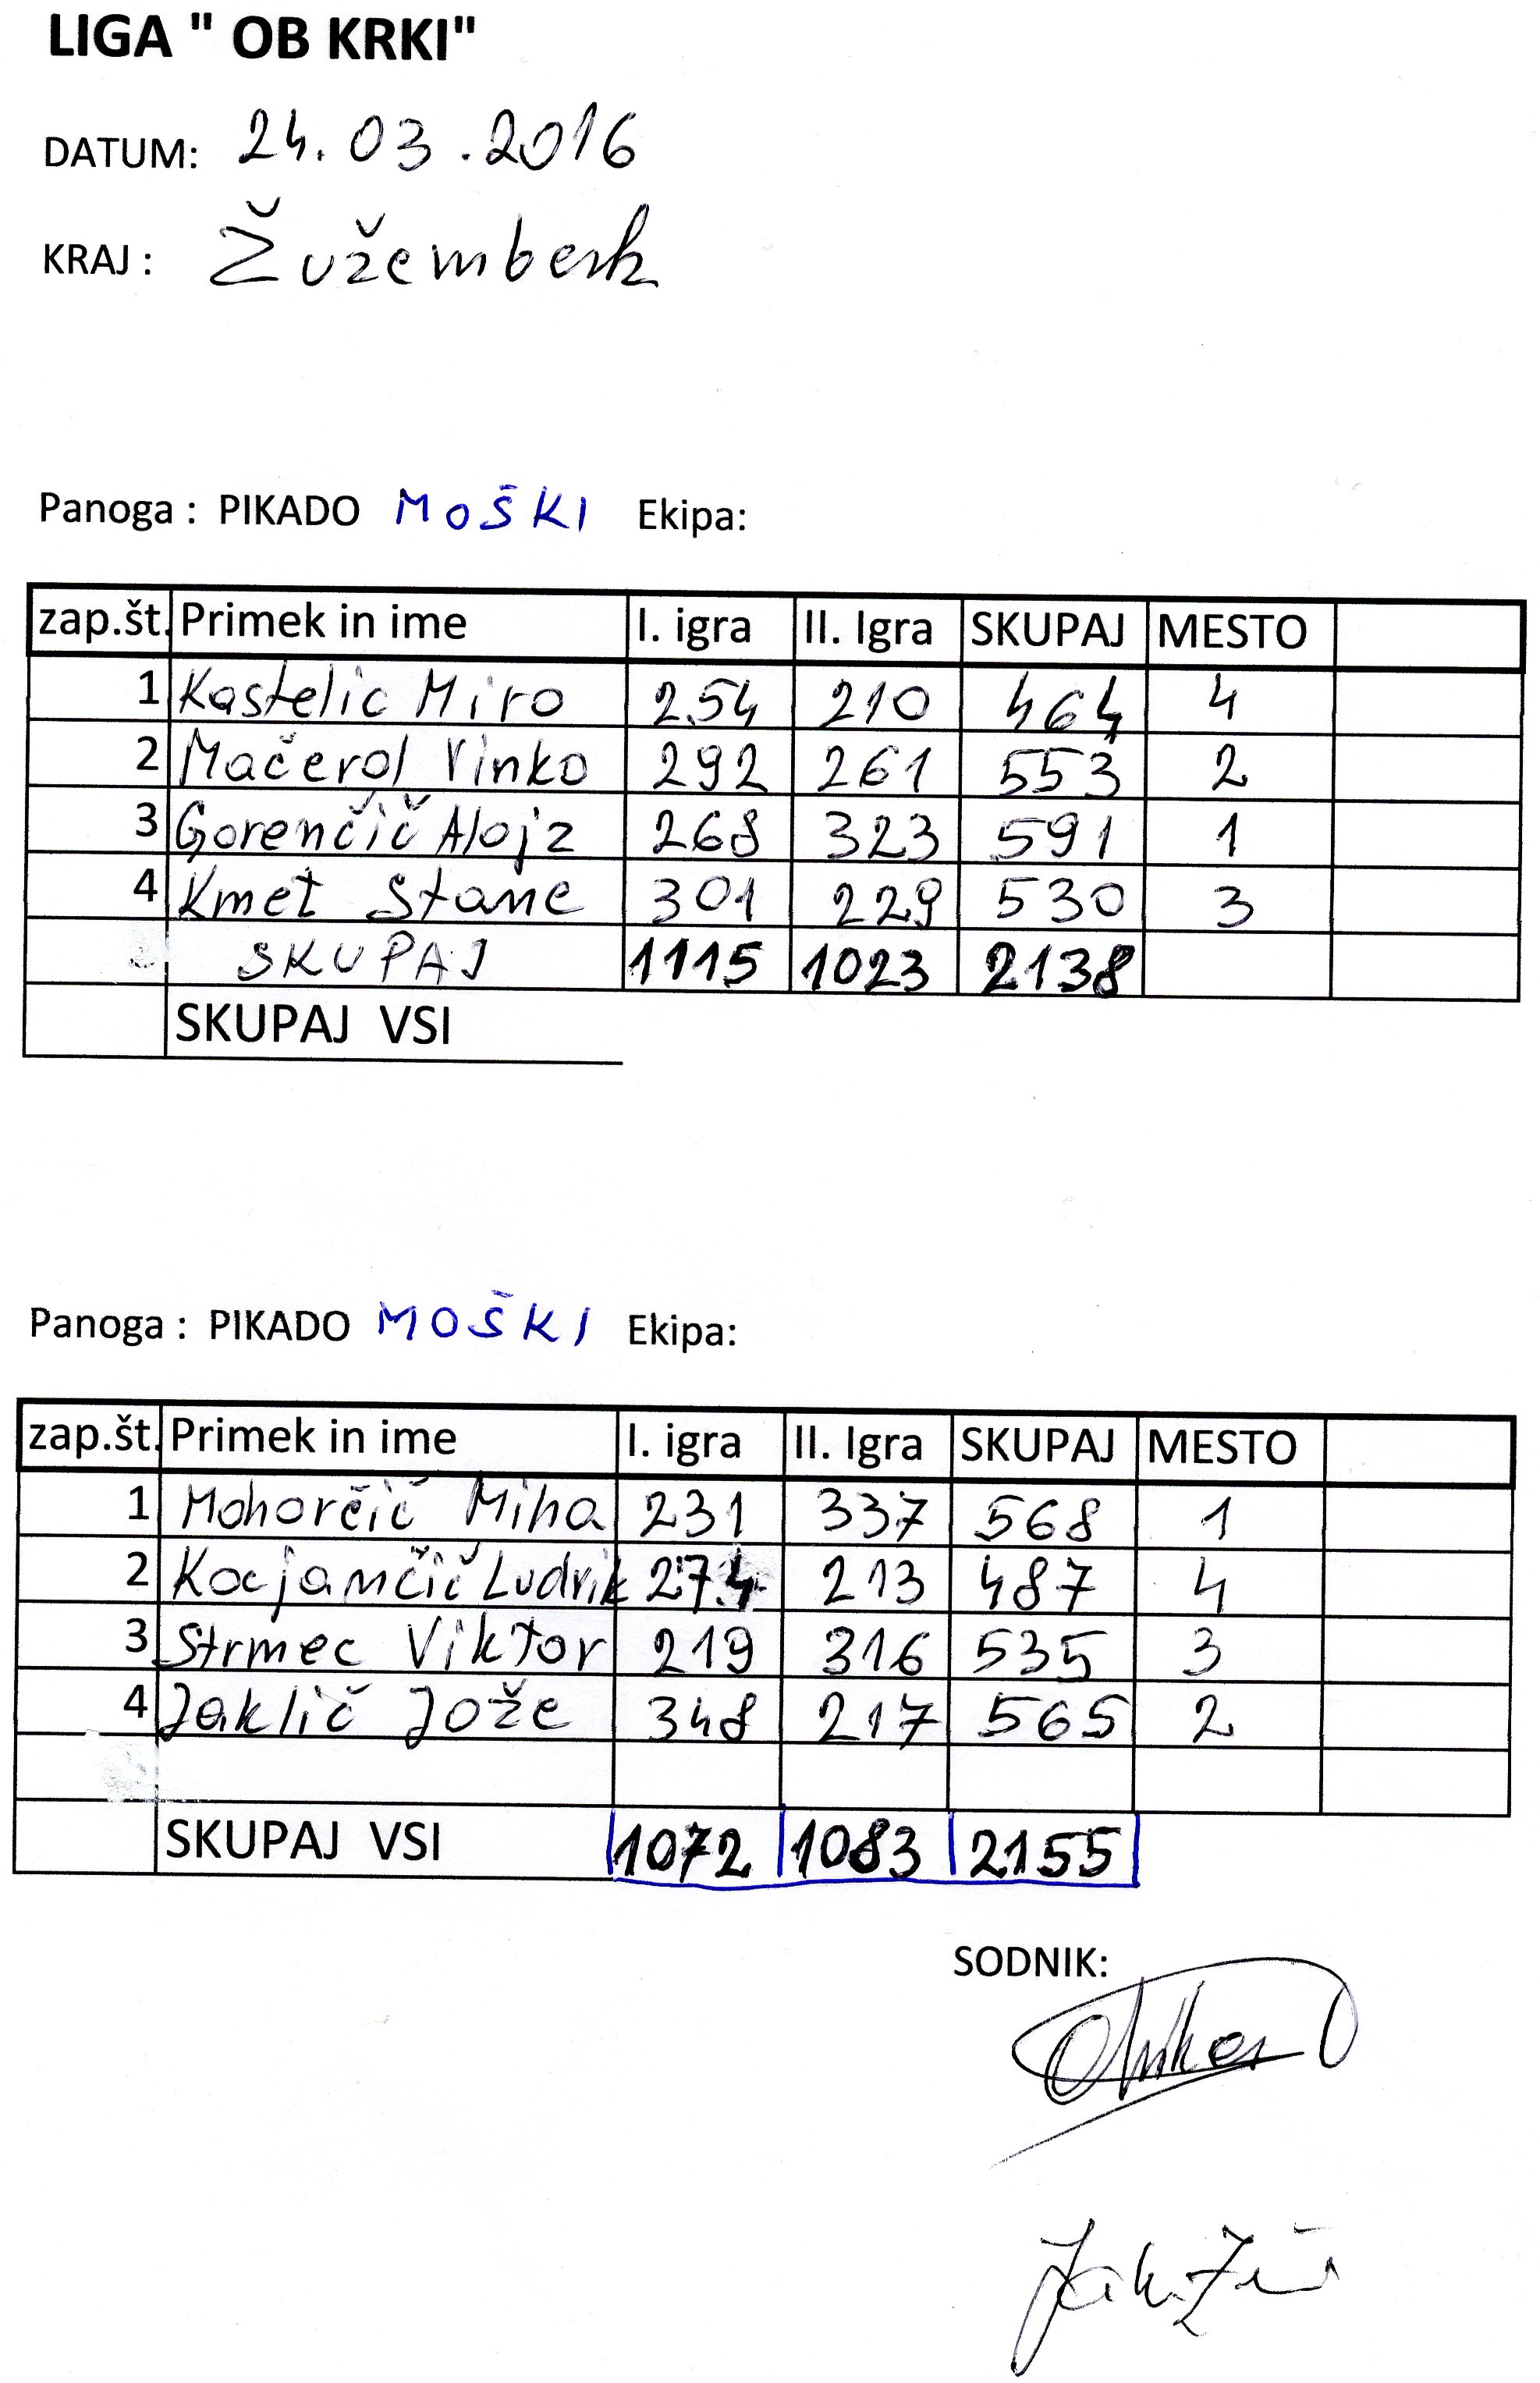 LIGA " OB KRKI"
DATUM: 24.03.2016
KRAJ: Žužemberk
Panoga : PIKADO MOŠKI Ekipa:
zap.št. Primek in ime I. igra II. Igra SKUPAJ MESTO
1 Kastelic Miro 254 210 464 4
2 Mačerol Vinko 292 261 553 2
3 Gorenčič Alojz 268 323 591 1
4 Kmet Stane 301 229 530 3
SKUPAJ 1115 1023 2138
SKUPAJ VSI
Panoga : PIKADO MOŠKI Ekipa:
zap.št. Primek in ime I. igra II. Igra SKUPAJ MESTO
1 Mohorčič Miha 231 337 568 1
2 Kocjančič Ludvik 274 213 487 4
3 Strmec Viktor 219 316 535 3
4 Jaklič Jože 348 217 565 2
SKUPAJ VSI 1072 1083 2155
SODNIK: